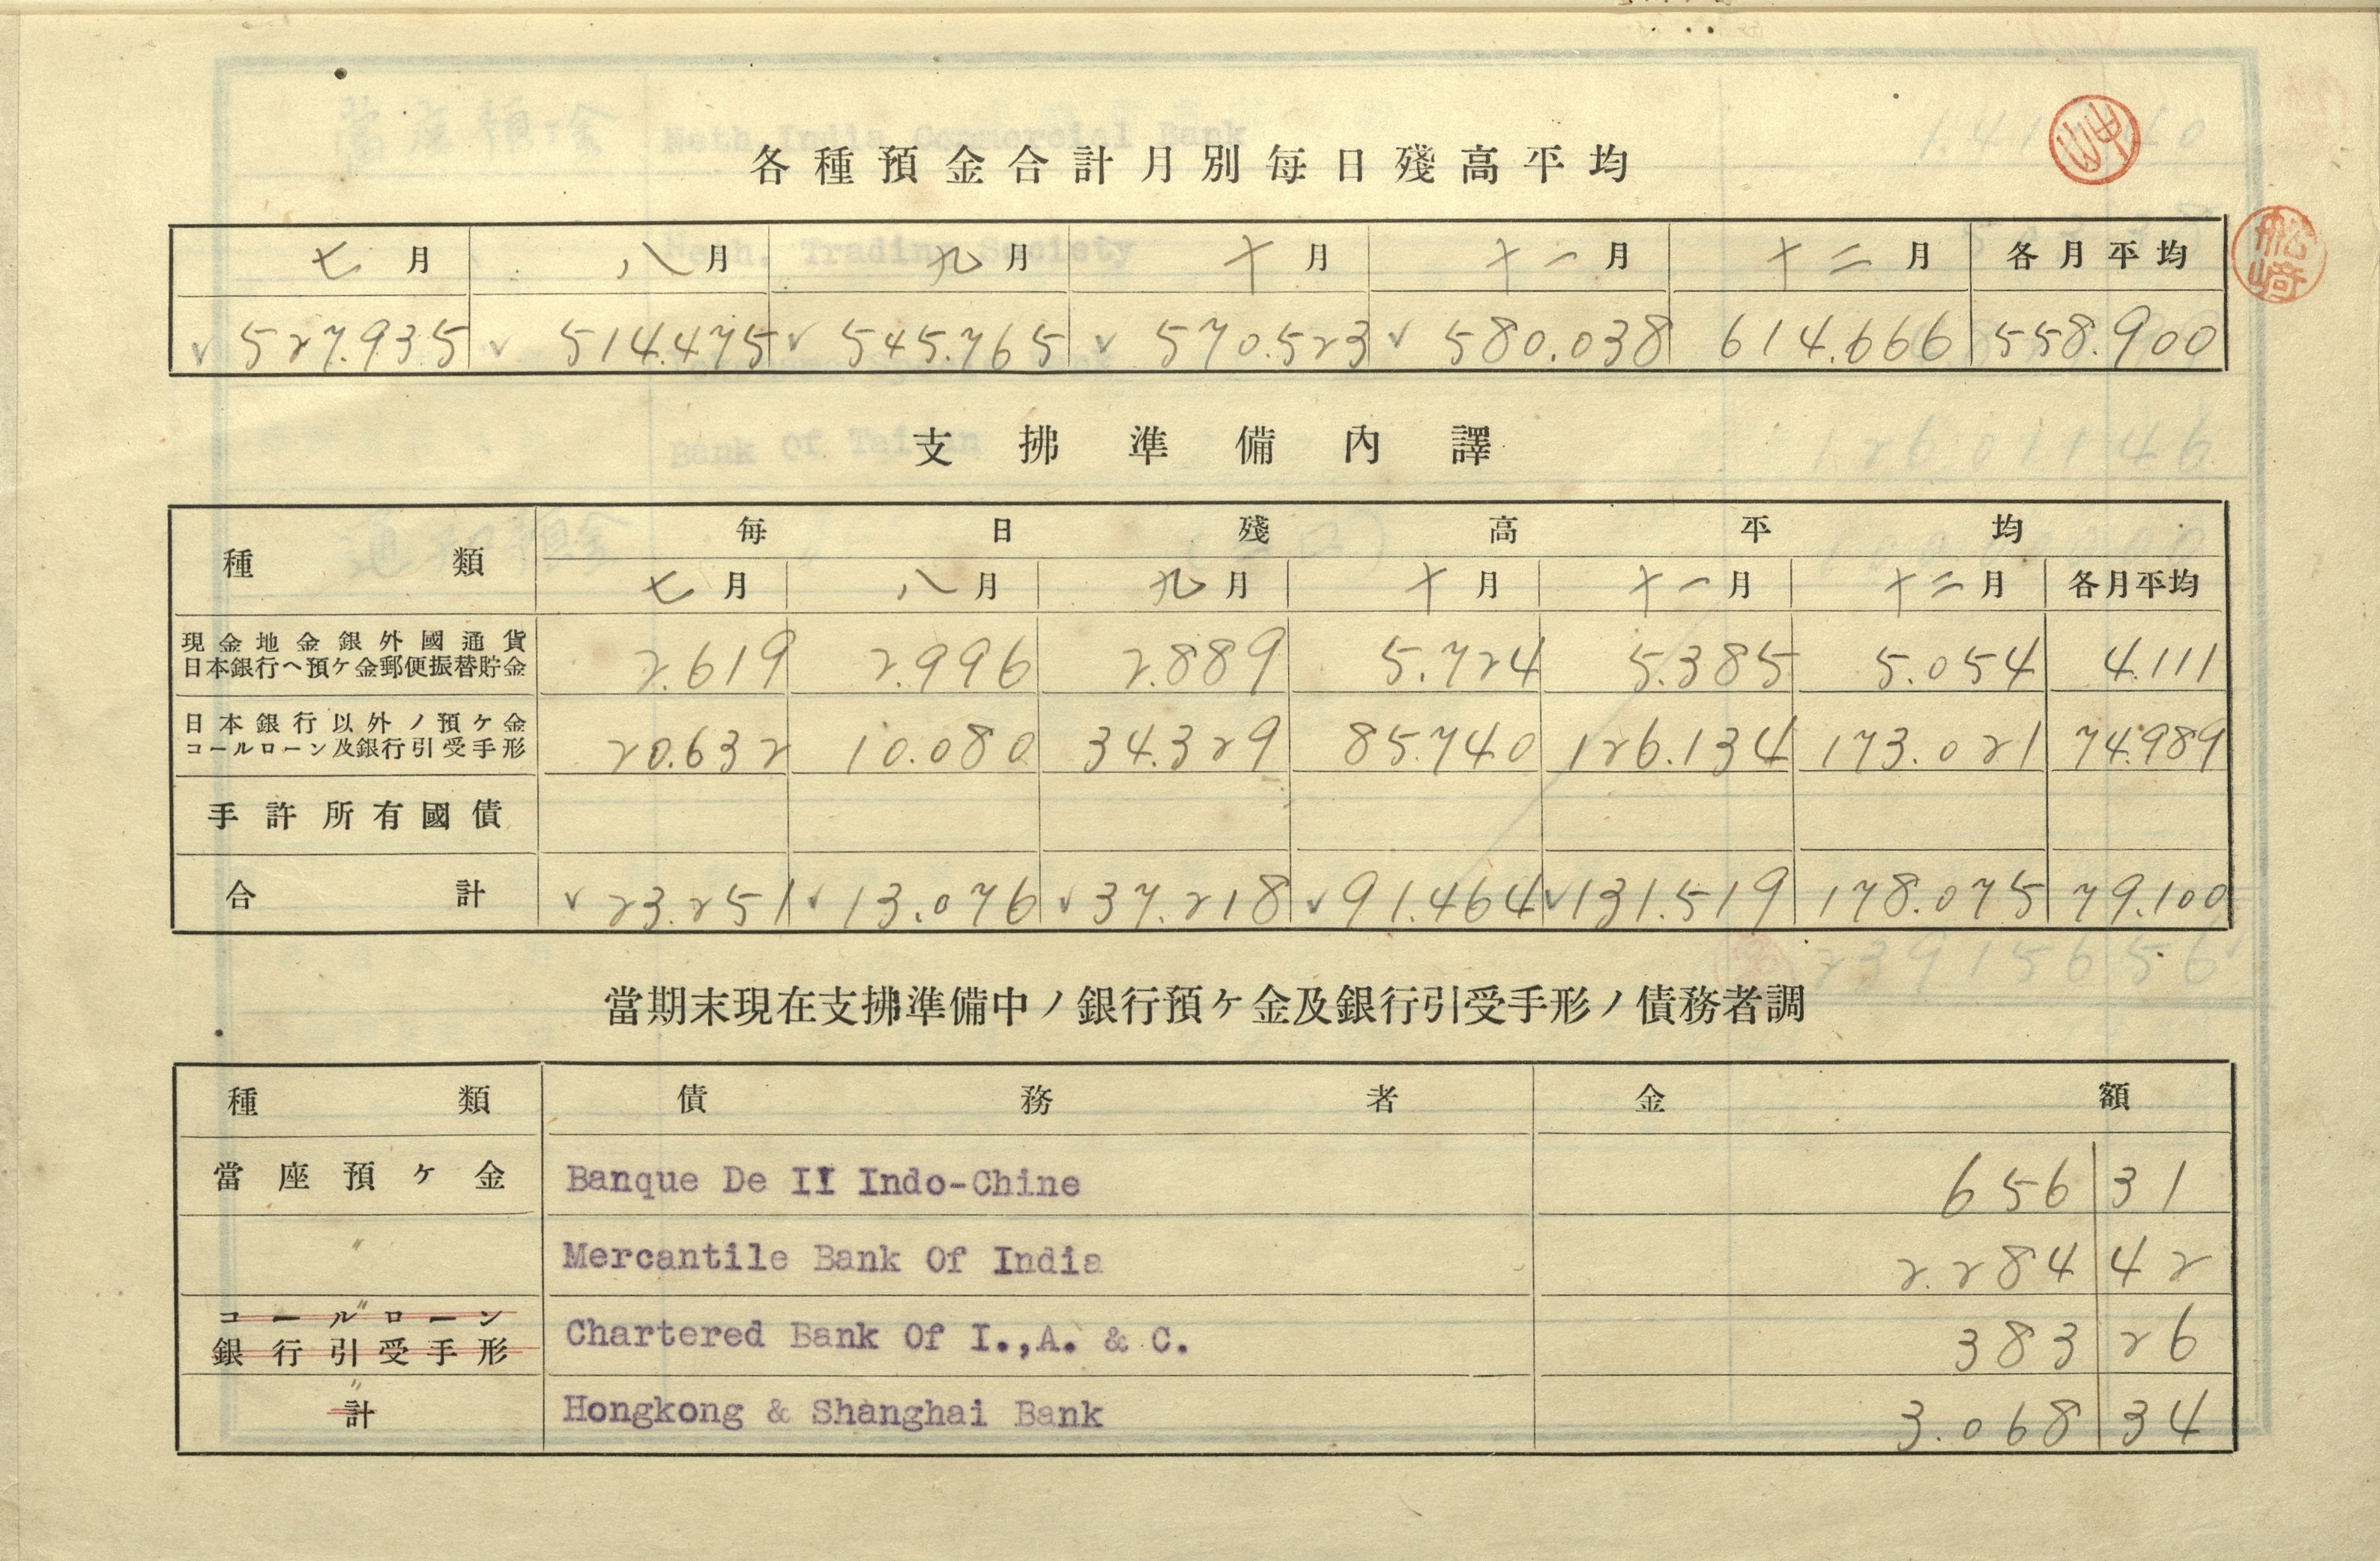 各種預金合計月別每日殘高平均
七月 八月 九月 十月 十一月 十二月 各月平均
527.935 514.475 545.765 570.523 580.038 614.666 558.900
支拂準備內譯
種類 每日殘高平均
七月 八月 九月 十月 十一月 十二月 各月平均
現金地金銀外國通貨
日本銀行ヘ預ケ金郵便振替貯金 2.619 2.996 2.889 5.724 5.385 5.054 4.111
日本銀行以外ノ預ケ金
コールローン及銀行引受手形 20.632 10.080 34.329 85.740 126.134 173.021 74.989
手許所有國債
合計 23.251 13.076 37.218 91.464 131.519 178.075 79.100
當期末現在支拂準備中ノ銀行預ケ金及銀行引受手形ノ債務者調
種類 債務者 金額
當座預ケ金 Banque De II Indo-Chine 656 31
〃 Mercantile Bank Of India 2.284 42
〃
コールローン
銀行引受手形 Chartered Bank Of I.,A. & C. 383 26
〃
計 Hongkong & Shanghai Bank 3.068 34